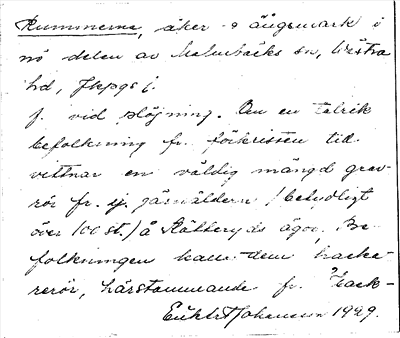 Rummerna, åker o ängsmark i
nö delen av Malmbäcks sn, Västra
hd, Jkpgs l.
f. vid plöjning. Om en talrik
befolkning fr. förkristen tid
vittnar en väldig mängd grav-
rör fr. ä. järnåldern (betydligt
över 100 st.) å Slättery ds ägor. Be-
folkningen kallar dem hacke-
rerör, härstammande fr. ? Hack-
Johansson 1929.